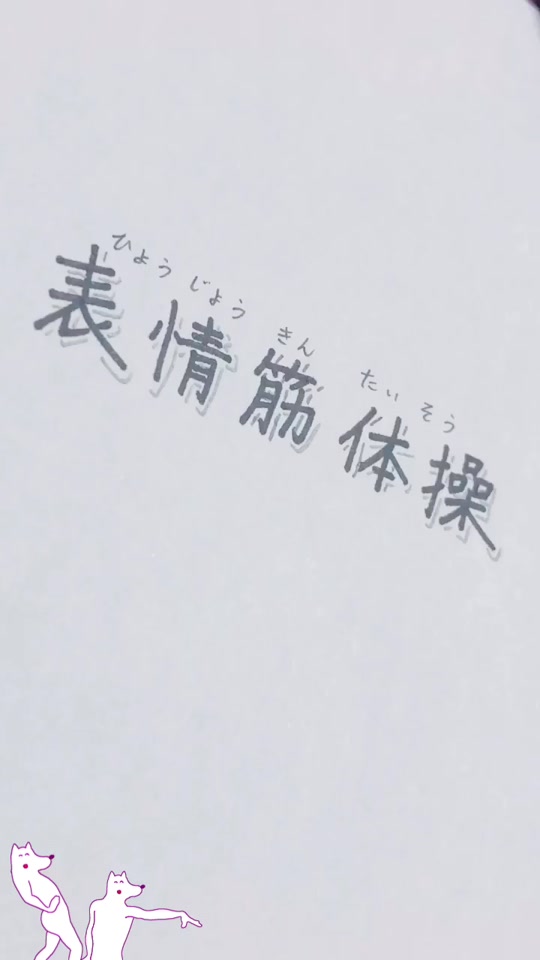 ひょう じょう きん たい そう
表情筋体操